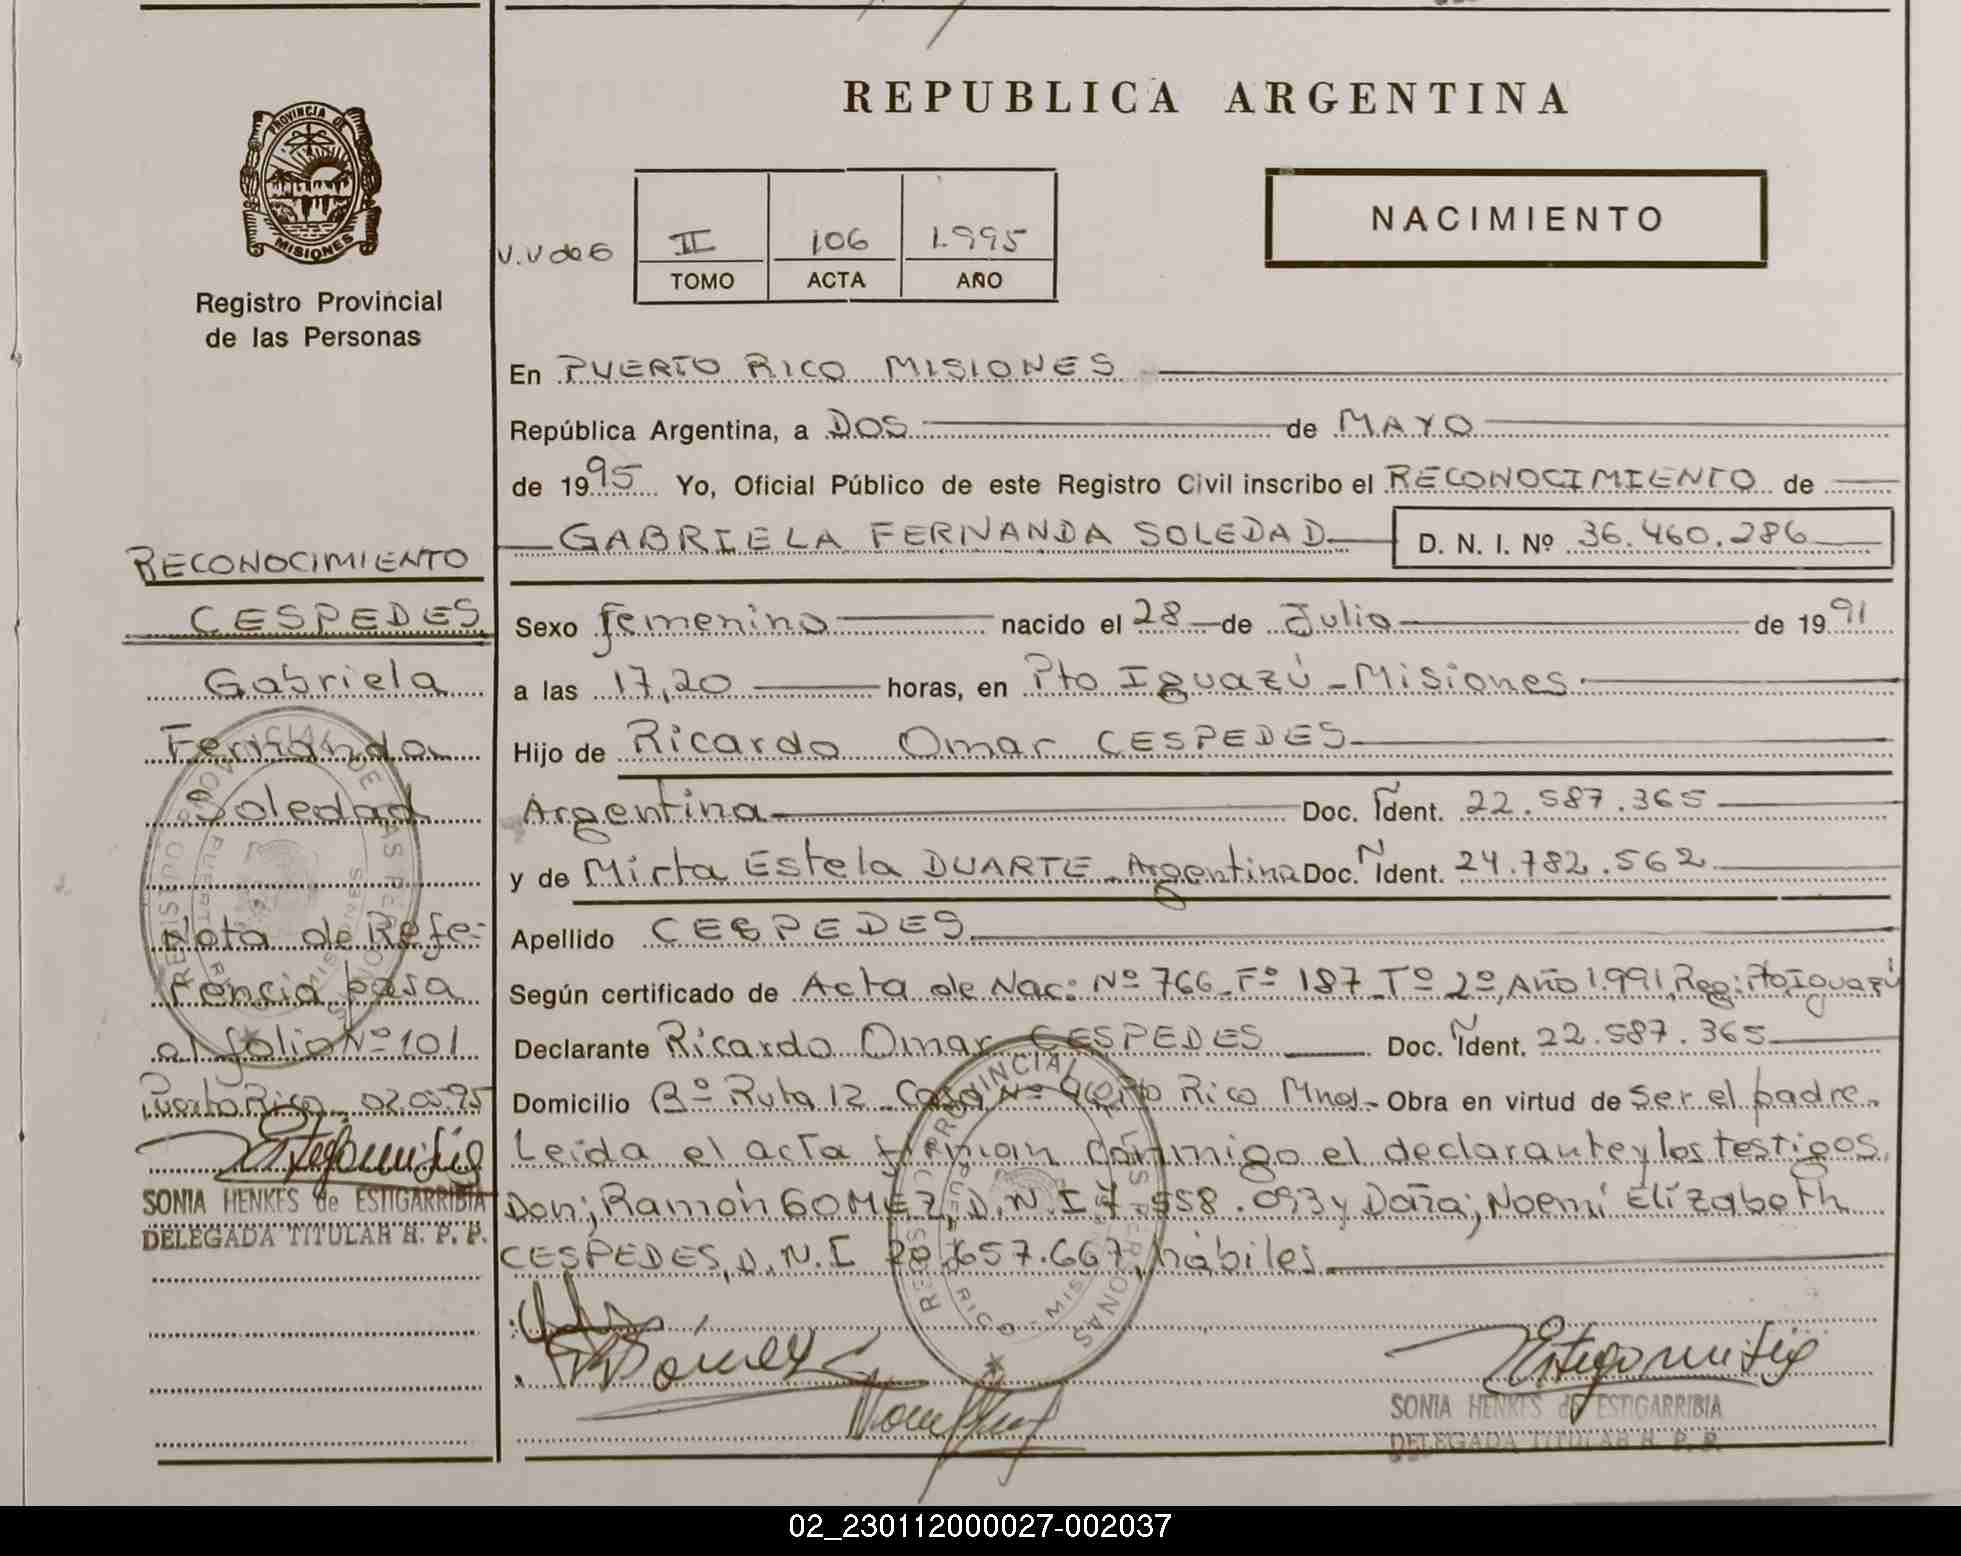 PROVINCIA DE
MISIONES
Registro Provincial
de las Personas
REPUBLICA ARGENTINA
NACIMIENTO
II 106 1.995
TOMO ACTA AÑO
En PUERTO RICO MISIONES
República Argentina, a DOS de MAYO
de 1995 Yo, Oficial Público de este Registro Civil inscribo el RECONOCIMIENTO de
GABRIELA FERNANDA SOLEDAD D. N. I. Nº 36.460.286
Sexo femenino nacido el 28 de Julio de 1991
a las 17,20 horas, en Pto Iguazú - Misiones
Hijo de Ricardo Omar CESPEDES
Argentina Doc. Ident. 22.587.365
y de Mirta Estela DUARTE - Argentina Doc. Ident. 24.782.562
Apellido CESPEDES
Según certificado de Acta de Nac: Nº 766 - Fº 187 - Tº 2º, Año 1.991, Reg: Pto Iguazú
Declarante Ricardo Omar CESPEDES Doc. Ident. 22.587.365
Domicilio Bº Ruta 12 - Casa Nº Pto Rico Mnes - Obra en virtud de ser el padre.
Leida el acta firman conmigo el declarante y los testigos,
Don; Ramón GOMEZ, D.N.I 7.558.093 y Doña; Noemí Elizabeth
CESPEDES, D.N.I 20.657.667, hábiles
RECONOCIMIENTO
CESPEDES
Gabriela
Fernanda
Soledad
Nota de Refe-
rencia pasa
al folio Nº 101
Puerto Rico, 02.05.95
SONIA HENKES de ESTIGARRIBIA
DELEGADA TITULAR R. P. P.
SONIA HENKES de ESTIGARRIBIA
DELEGADA TITULAR R. P. P.
02_230112000027-002037